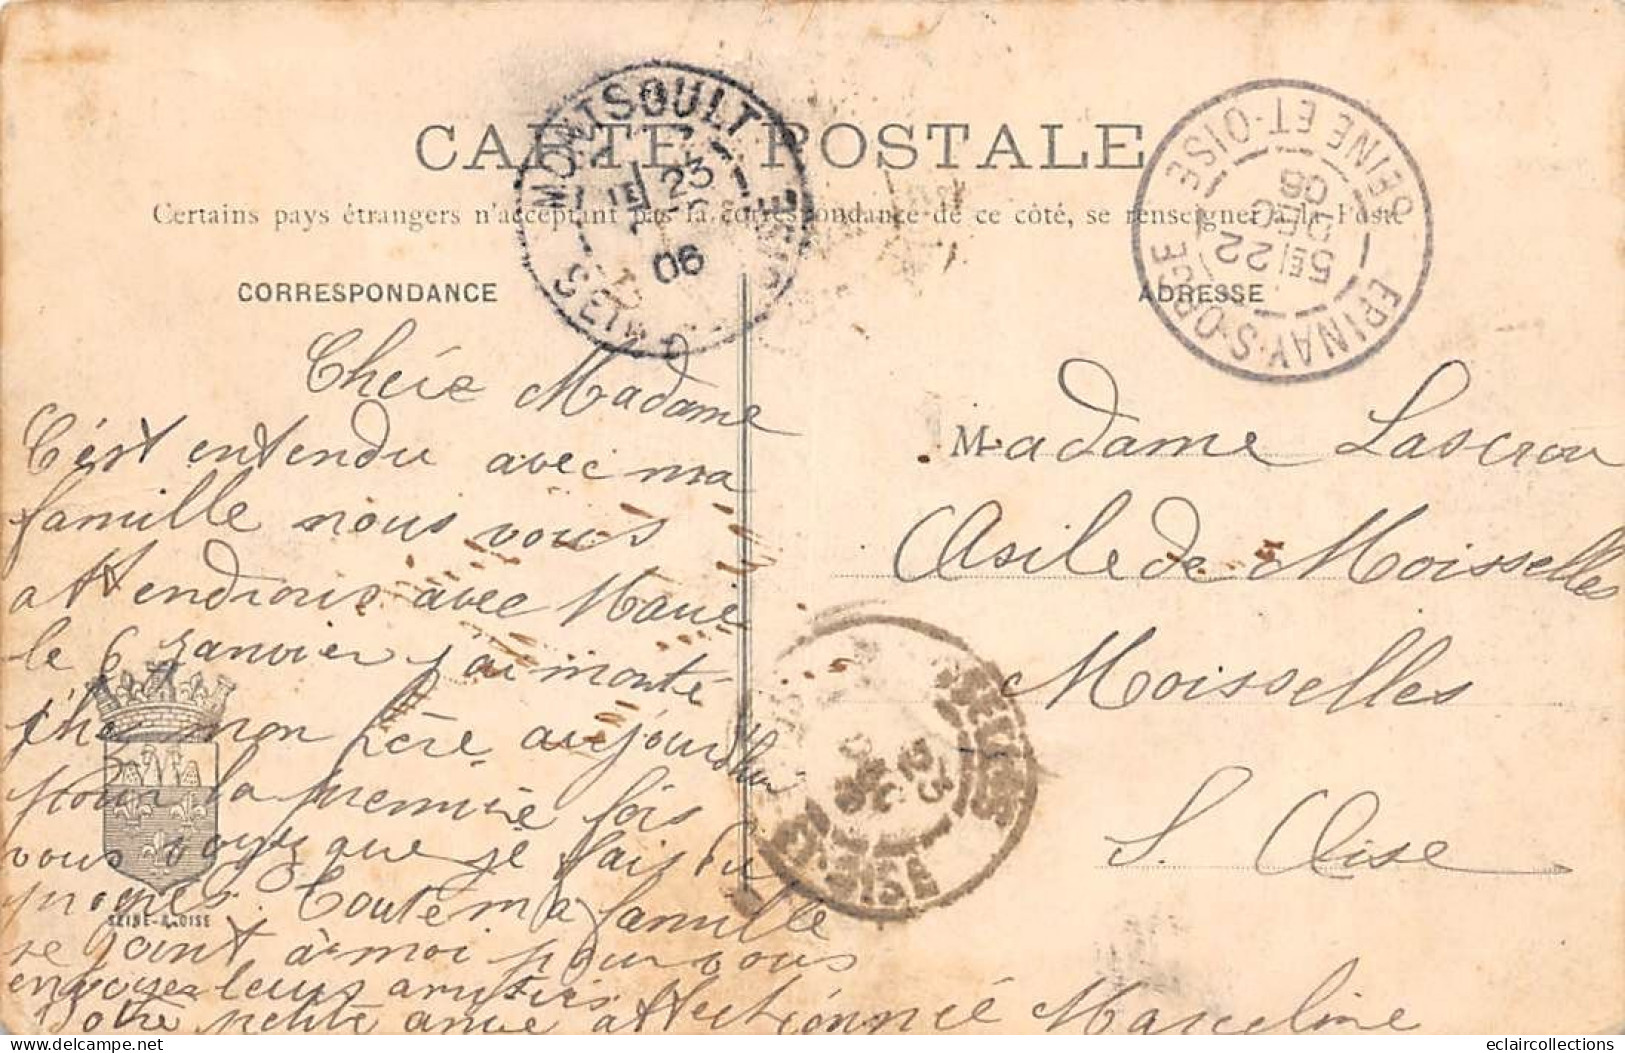 CARTE POSTALE
Certains pays étrangers n'acceptent pas la correspondance de ce côté, se renseigner à la Poste
CORRESPONDANCE
ADRESSE
MONTSOULT
23
06
EPINAY-S-ORGE
SEINE ET-OISE
5E 22
DEC
06
Chére Madame
C'ést entendu avec ma
famille nous vous
attendrons avec Marie
le 6 janvier j'ai monté
chez mon père aujourdhui
pour la première fois
vous voyez que je fais du
progrès. Toute ma famille
se joint à moi pour vous
envoyer leurs amitiés
Votre petite amie affectionnée Marceline
SEINE-&-OISE
Madame Lascrou
Asile de Moisselles
Moisselles
S. Oise
ET-OISE
eclaircollections